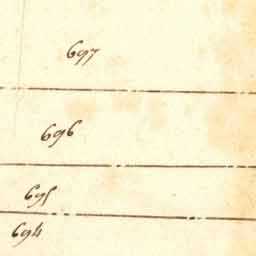 697
696
695
694